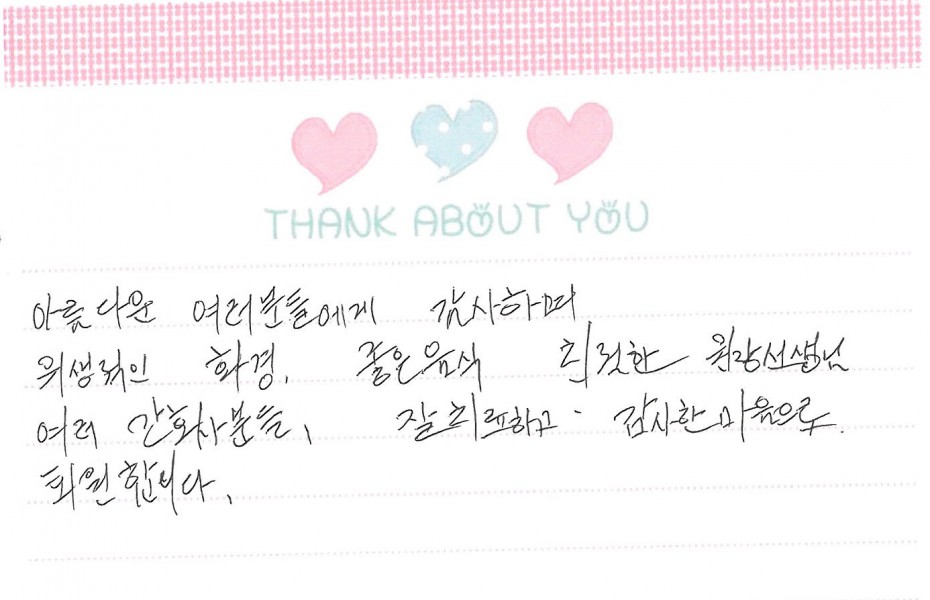 THANK ABOUT YOU
아름다운 여러분들에게 감사하며
위생적인 환경, 좋은음식 원장선생님
여러 간호사분들, 잘치료하고 감사한마음으로.
퇴원합니다.